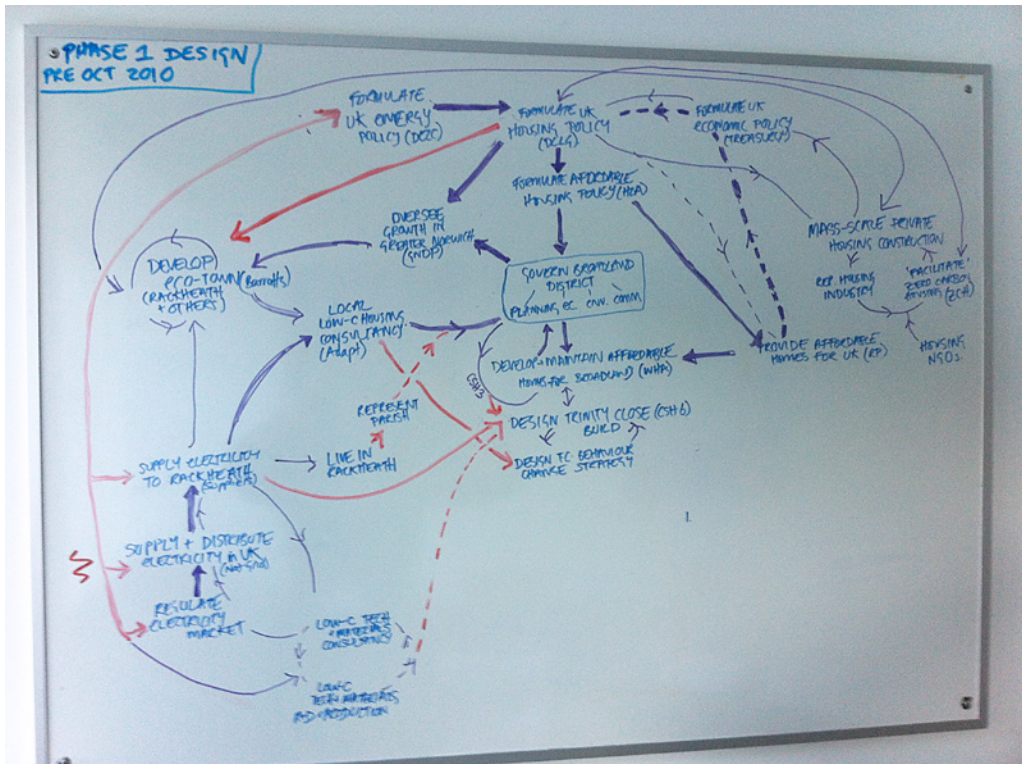 PHASE 1 DESIGN
PRE OCT 2010
FORMULATE
UK ENERGY
POLICY (DECC)
FORMULATE UK
HOUSING POLICY
(DCLG)
FORMULATE UK
ECONOMIC POLICY
(TREASURY)
FORMULATE AFFORDABLE
HOUSING POLICY (HCA)
OVERSEE
GROWTH IN
GREATER NORWICH
(GNDP)
MASS-SCALE PRIVATE
HOUSING CONSTRUCTION
REP. HOUSING
INDUSTRY
'FACILITATE'
ZERO CARBON
(ZCH)
HOUSING
NGOs.
DEVELOP
eco-TOWN (Barratts)
(RACKHEATH
+ OTHERS)
GOVERN BROADLAND
DISTRICT
PLANNING EC. ENV. COMM
LOCAL
LOW-C HOUSING
CONSULTANCY
(Adapt)
PROVIDE AFFORDABLE
HOMES FOR UK (RP)
DEVELOP + MAINTAIN AFFORDABLE
HOMES FOR BROADLAND (WHA)
CSH3
REPRESENT
PARISH
DESIGN TRINITY CLOSE (CSH 6)
BUILD
DESIGN TC BEHAVIOUR
CHANGE STRATEGY
SUPPLY ELECTRICITY
TO RACKHEATH
(SUPPLIERS)
LIVE IN
RACKHEATH
SUPPLY + DISTRIBUTE
ELECTRICITY in UK
(Nat Grid)
REGULATE
ELECTRICITY
MARKET
LOW-C TECH
+ MATERIALS
CONSULTANCY
LOW-C
TECH + MATERIALS
R+D + PRODUCTION